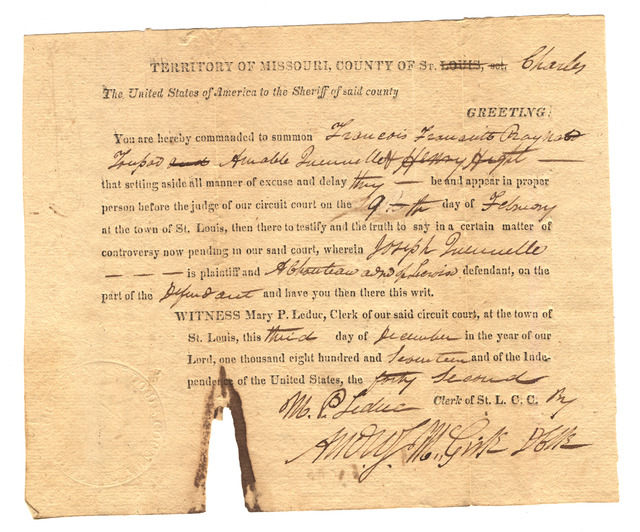 TERRITORY OF MISSOURI, COUNTY OF St. LOUIS, sct. Charles
The United States of America to the Sheriff of said county
GREETING:
You are hereby commanded to summon Francois
and Amable Quennelle
that setting aside all manner of excuse and delay they — be and appear in proper
person before the judge of our circuit court on the 9th day of February
at the town of St. Louis, then there to testify and the truth to say in a certain matter of
controversy now pending in our said court, wherein Joseph Quennelle
— — — is plaintiff and A Chouteau defendant, on the
part of the Defendant and have you then there this writ.
WITNESS Mary P. Leduc, Clerk of our said circuit court, at the town of
St. Louis, this third day of December in the year of our
Lord, one thousand eight hundred and Seventeen and of the Inde-
pendence of the United States, the forty Second
M. P. Leduc Clerk of St. L. C. C. By
Andw McGirk